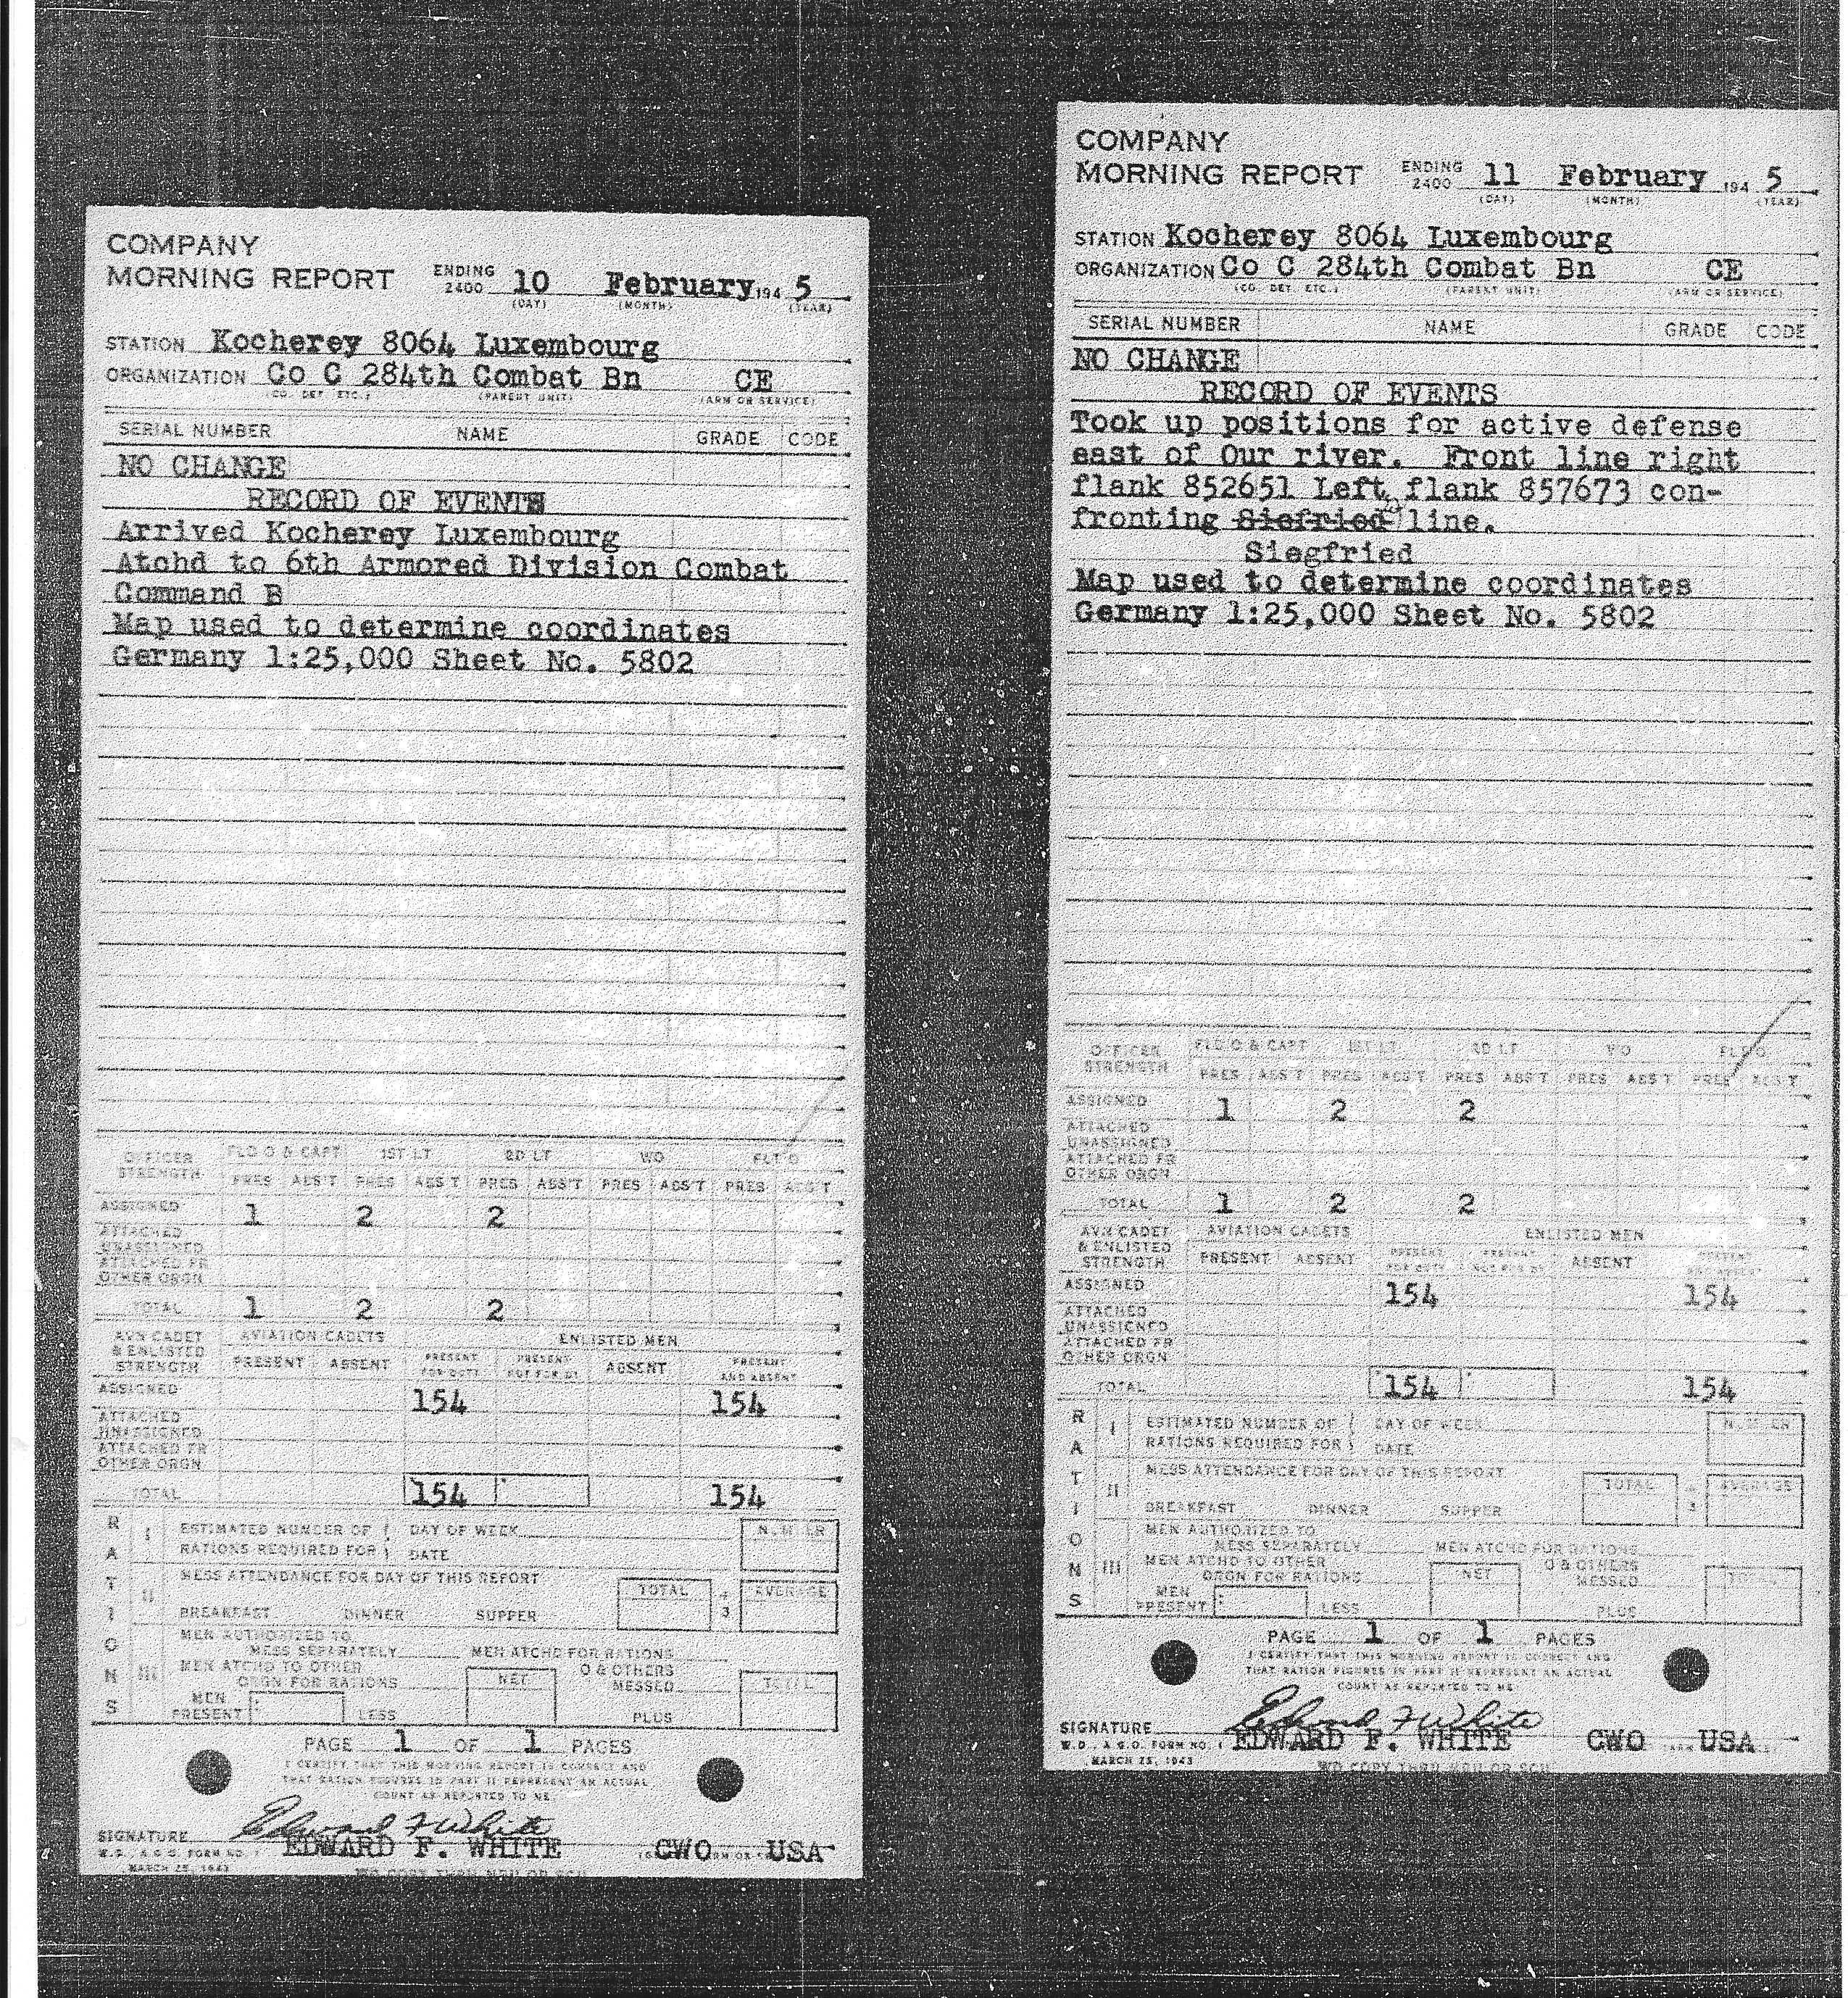 COMPANY
MORNING REPORT ENDING 2400 10 February 194 5
(DAY) (MONTH) (YEAR)
STATION Kocherey 8064 Luxembourg
ORGANIZATION Co C 284th Combat Bn CE
(CO. DET. ETC.) (PARENT UNIT) (ARM OR SERVICE)
SERIAL NUMBER NAME GRADE CODE
NO CHANGE
RECORD OF EVENTS
Arrived Kocherey Luxembourg
Atchd to 6th Armored Division Combat
Command B
Map used to determine coordinates
Germany 1:25,000 Sheet No. 5802
OFFICER STRENGTH FLD O & CAPT 1ST LT 2D LT WO FLT O
PRES ABS'T PRES ABS'T PRES ABS'T PRES ABS'T PRES ABS'T
ASSIGNED 1 2 2
ATTACHED UNASSIGNED
ATTACHED FR OTHER ORGN
TOTAL 1 2 2
AVN CADET & ENLISTED STRENGTH AVIATION CADETS ENLISTED MEN
PRESENT ABSENT PRESENT FOR DUTY PRESENT NOT FOR DY ABSENT PRESENT AND ABSENT
ASSIGNED 154 154
ATTACHED UNASSIGNED
ATTACHED FR OTHER ORGN
TOTAL 154 154
RATIONS
I ESTIMATED NUMBER OF RATIONS REQUIRED FOR DAY OF WEEK DATE NUMBER
II MESS ATTENDANCE FOR DAY OF THIS REPORT TOTAL ÷ 3 AVERAGE
BREAKFAST DINNER SUPPER
III MEN AUTHORIZED TO MESS SEPARATELY MEN ATCHD FOR RATIONS
MEN ATCHD TO OTHER ORGN FOR RATIONS NET O & OTHERS MESSED TOTAL
MEN PRESENT LESS PLUS
PAGE 1 OF 1 PAGES
I CERTIFY THAT THIS MORNING REPORT IS CORRECT AND
THAT RATION FIGURES IN PART II REPRESENT AN ACTUAL
COUNT AS REPORTED TO ME
SIGNATURE Edward F White
EDWARD F. WHITE CWO USA
W.D., A.G.O. FORM NO. 1
MARCH 25, 1943
COMPANY
MORNING REPORT ENDING 2400 11 February 194 5
(DAY) (MONTH) (YEAR)
STATION Kocherey 8064 Luxembourg
ORGANIZATION Co C 284th Combat Bn CE
(CO. DET. ETC.) (PARENT UNIT) (ARM OR SERVICE)
SERIAL NUMBER NAME GRADE CODE
NO CHANGE
RECORD OF EVENTS
Took up positions for active defense
east of Our river. Front line right
flank 852651 Left flank 857673 con-
fronting Siefried line.
Siegfried
Map used to determine coordinates
Germany 1:25,000 Sheet No. 5802
OFFICER STRENGTH FLD O & CAPT 1ST LT 2D LT WO FLT O
PRES ABS'T PRES ABS'T PRES ABS'T PRES ABS'T PRES ABS'T
ASSIGNED 1 2 2
ATTACHED UNASSIGNED
ATTACHED FR OTHER ORGN
TOTAL 1 2 2
AVN CADET & ENLISTED STRENGTH AVIATION CADETS ENLISTED MEN
PRESENT ABSENT PRESENT FOR DUTY PRESENT NOT FOR DY ABSENT PRESENT AND ABSENT
ASSIGNED 154 154
ATTACHED UNASSIGNED
ATTACHED FR OTHER ORGN
TOTAL 154 154
RATIONS
I ESTIMATED NUMBER OF RATIONS REQUIRED FOR DAY OF WEEK DATE NUMBER
II MESS ATTENDANCE FOR DAY OF THIS REPORT TOTAL ÷ 3 AVERAGE
BREAKFAST DINNER SUPPER
III MEN AUTHORIZED TO MESS SEPARATELY MEN ATCHD FOR RATIONS
MEN ATCHD TO OTHER ORGN FOR RATIONS NET O & OTHERS MESSED TOTAL
MEN PRESENT LESS PLUS
PAGE 1 OF 1 PAGES
I CERTIFY THAT THIS MORNING REPORT IS CORRECT AND
THAT RATION FIGURES IN PART II REPRESENT AN ACTUAL
COUNT AS REPORTED TO ME
SIGNATURE Edward F White
EDWARD F. WHITE CWO USA
W.D., A.G.O. FORM NO. 1
MARCH 25, 1943